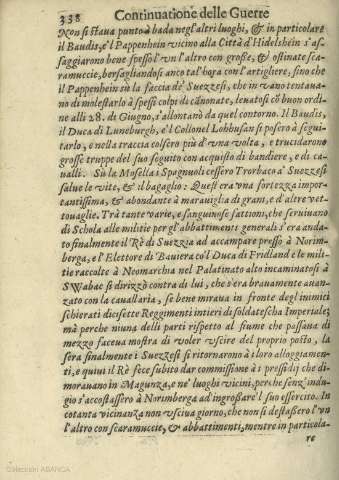 338 Continuatione delle Guerre
Non si staua punto à bada negl'altri luoghi, & in particolare
il Baudis, e'l Pappenhein vicino alla Città d'Hidelshein s'as-
saggiarono bene spesso l'vn l'altro con grosse, & ostinate scar-
amuccie, bersagliandosi anco tal'hora con l'artigliere, fino che
il Pappenhein sù la faccia de' Suezzesi, che in vano tentaua-
no di molestarlo à spessi colpi di cãnonate, leuatosi cõ buon ordi-
ne alli 28. di Giugno, s'allontanò da quel contorno. Il Baudis,
il Duca di Luneburgh, e'l Collonel Lohhusan si posero à segui-
tarlo, e nella traccia colsero più d'vna volta, e trucidarono
grosse truppe del suo seguito con acquisto di bandiere, e di ca-
ualli. Sù la Mosella i Spagnuoli cessero Trorbaco à Suezzesi
salue le vite, & il bagaglio: Quest'era vna fortezza impor-
tantissima, & abondante à marauiglia di grani, e d'altre vet-
touaglie. Trà tante varie, e sanguinose fattioni, che seruiuano
di Schola alle militie per gl'abbattimenti generali s'era anda-
to finalmente il Rè di Suezzia ad accampare presso à Norim-
berga, e l'Elettore di Bauiera col Duca di Fridland e le mili-
tie raccolte à Neomarchia nel Palatinato alto incaminatosi à
Swabac si dirizzò contra di lui, che s'era brauamente auan-
zato con la cauallaria, se bene miraua in fronte degl'inimici
schierati diecisette Reggimenti intieri di soldatescha Imperiale;
mà perche niuna delli parti rispetto al fiume che passaua di
mezzo faceua mostra di voler vscire del proprio posto, la
sera finalmente i Suezzesi si ritornarono à i loro alloggiamen-
ti, e quiui il Rè fece subito dar commissione à i pressidij che di-
morauano in Magunza, e ne' luoghi vicini, perche senz'indu-
gio s'accostassero à Norimberga ad ingrossare'l suo essercito. In
cotanta vicinanza non vsciua giorno, che non si destassero l'vn
l'altro con scaramuccie, & abbattimenti, mentre in particola-
re
Colección ABANCA